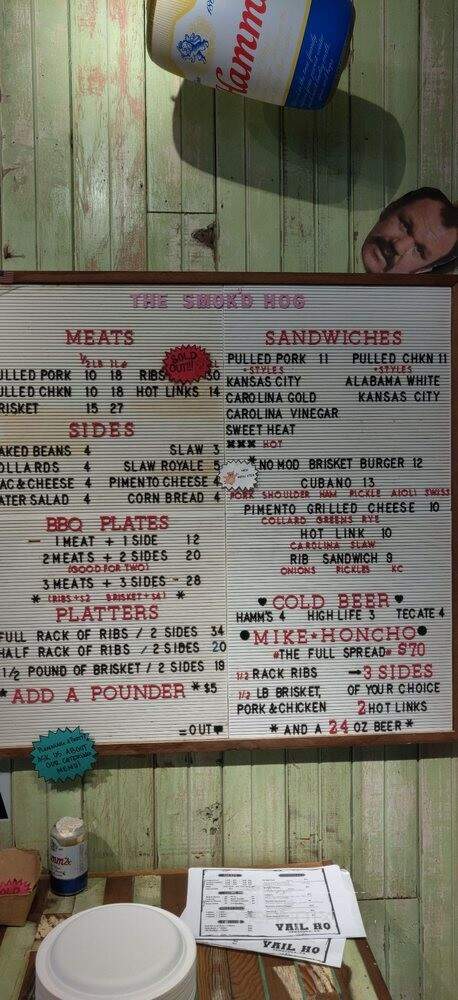 Hamm's
THE SMOK'D HOG
MEATS
1/2 LB 1 LB
ULLED PORK 10 18 RIBS 30
SOLD OUT!!!
ULLED CHKN 10 18 HOT LINKS 14
RISKET 15 27
SIDES
AKED BEANS 4 SLAW 3
OLLARDS 4 SLAW ROYALE 5
AC & CHEESE 4 PIMENTO CHEESE 4
ATER SALAD 4 CORN BREAD 4
BBQ PLATES
1 MEAT + 1 SIDE 12
2 MEATS + 2 SIDES 20
(GOOD FOR TWO)
3 MEATS + 3 SIDES - 28
* (RIBS +$2 BRISKET +$4) *
PLATTERS
FULL RACK OF RIBS / 2 SIDES 34
HALF RACK OF RIBS / 2 SIDES 20
1/2 POUND OF BRISKET / 2 SIDES 19
* ADD A POUNDER * $5
= OUT
SANDWICHES
PULLED PORK 11 PULLED CHKN 11
+STYLES +STYLES
KANSAS CITY ALABAMA WHITE
CAROLINA GOLD KANSAS CITY
CAROLINA VINEGAR
SWEET HEAT
XXXX HOT
*NO MOD BRISKET BURGER 12
CUBANO 13
PORK SHOULDER HAM PICKLE AIOLI SWISS
PIMENTO GRILLED CHEESE 10
COLLARD GREENS RYE
HOT LINK 10
CAROLINA SLAW
RIB SANDWICH 9
ONIONS PICKLES KC
COLD BEER
HAMM'S 4 HIGH LIFE 3 TECATE 4
MIKE*HONCHO
*THE FULL SPREAD* $70
1/2 RACK RIBS 3 SIDES
1/2 LB BRISKET, OF YOUR CHOICE
PORK & CHICKEN 2 HOT LINKS
* AND A 24 OZ BEER *
ASK US ABOUT
OUR CATERING
MENU!
VAIL HO
VAIL HO